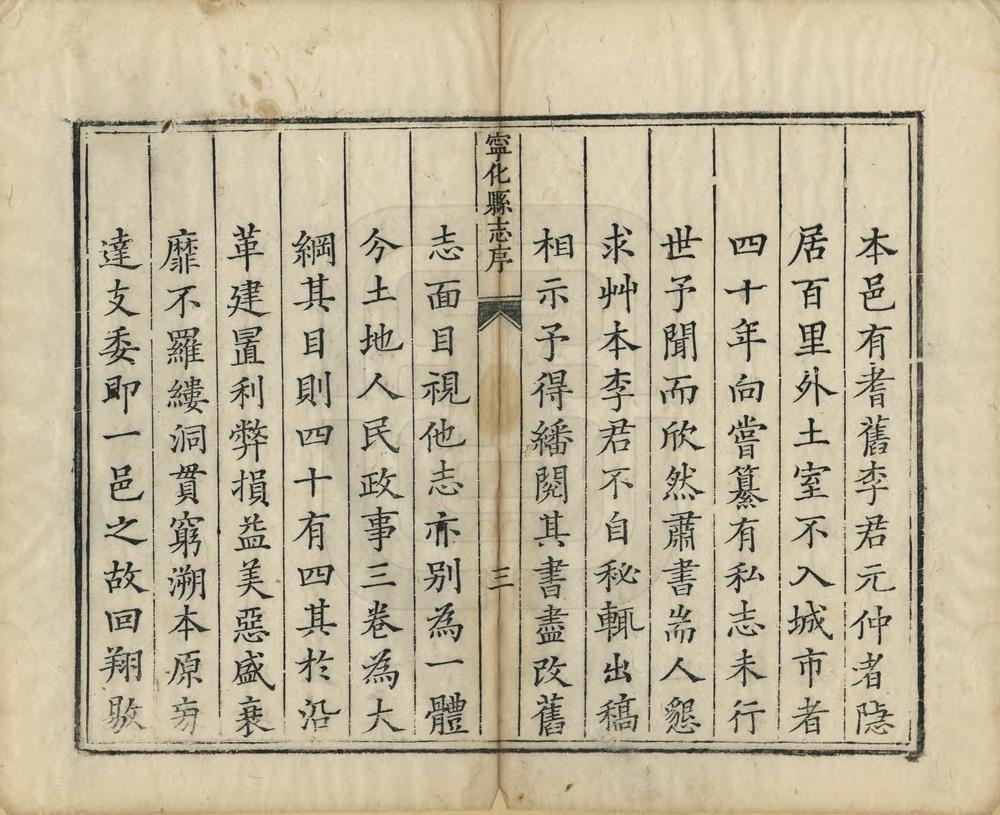 本邑有耆舊李君元仲者隱
居百里外土室不入城市者
四十年向嘗纂有私志未行
世予聞而欣然肅書耑人懇
求艸本李君不自秘輒出稿
相示予得繙閱其書盡改舊
寧化縣志序
三
志面目視他志亦别為一體
今土地人民政事三卷為大
綱其目則四十有四其於沿
革建置利弊損益美惡盛衰
靡不羅縷洞貫窮溯本原旁
達支委即一邑之故回翔歇